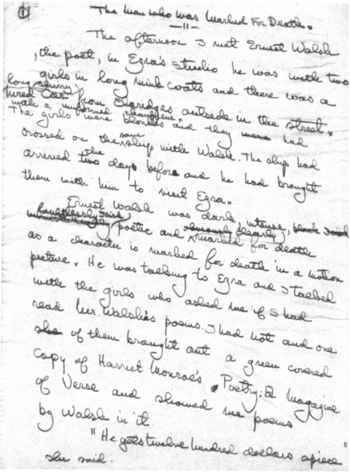 ①
The Man who was Marked For Death.
11
The afternoon I met Ernest Walsh
, the poet, in Ezra's studio he was with two
girls in long mink coats and there was a
long, shiny
hired car from Claridges outside in the street.
with a uniformed chauffeur.
The girls were blondes and they had
crossed on the same ship with Walsh. The ship had
arrived the day before and he had brought
them with him to visit Ezra.
Ernest Walsh was dark, intense,
faultlessly Irish, poetic and clearly marked for death
as a character is marked for death in a motion
picture. He was talking to Ezra and I talked
with the girls who asked me if I had
read Mr. Walsh's poems. I had not and one
of them brought out a green covered
copy of Harriet Monroe's, Poetry: A Magazine
of Verse and showed me poems
by Walsh in it.
"He gets twelve hundred dollars apiece
she said.